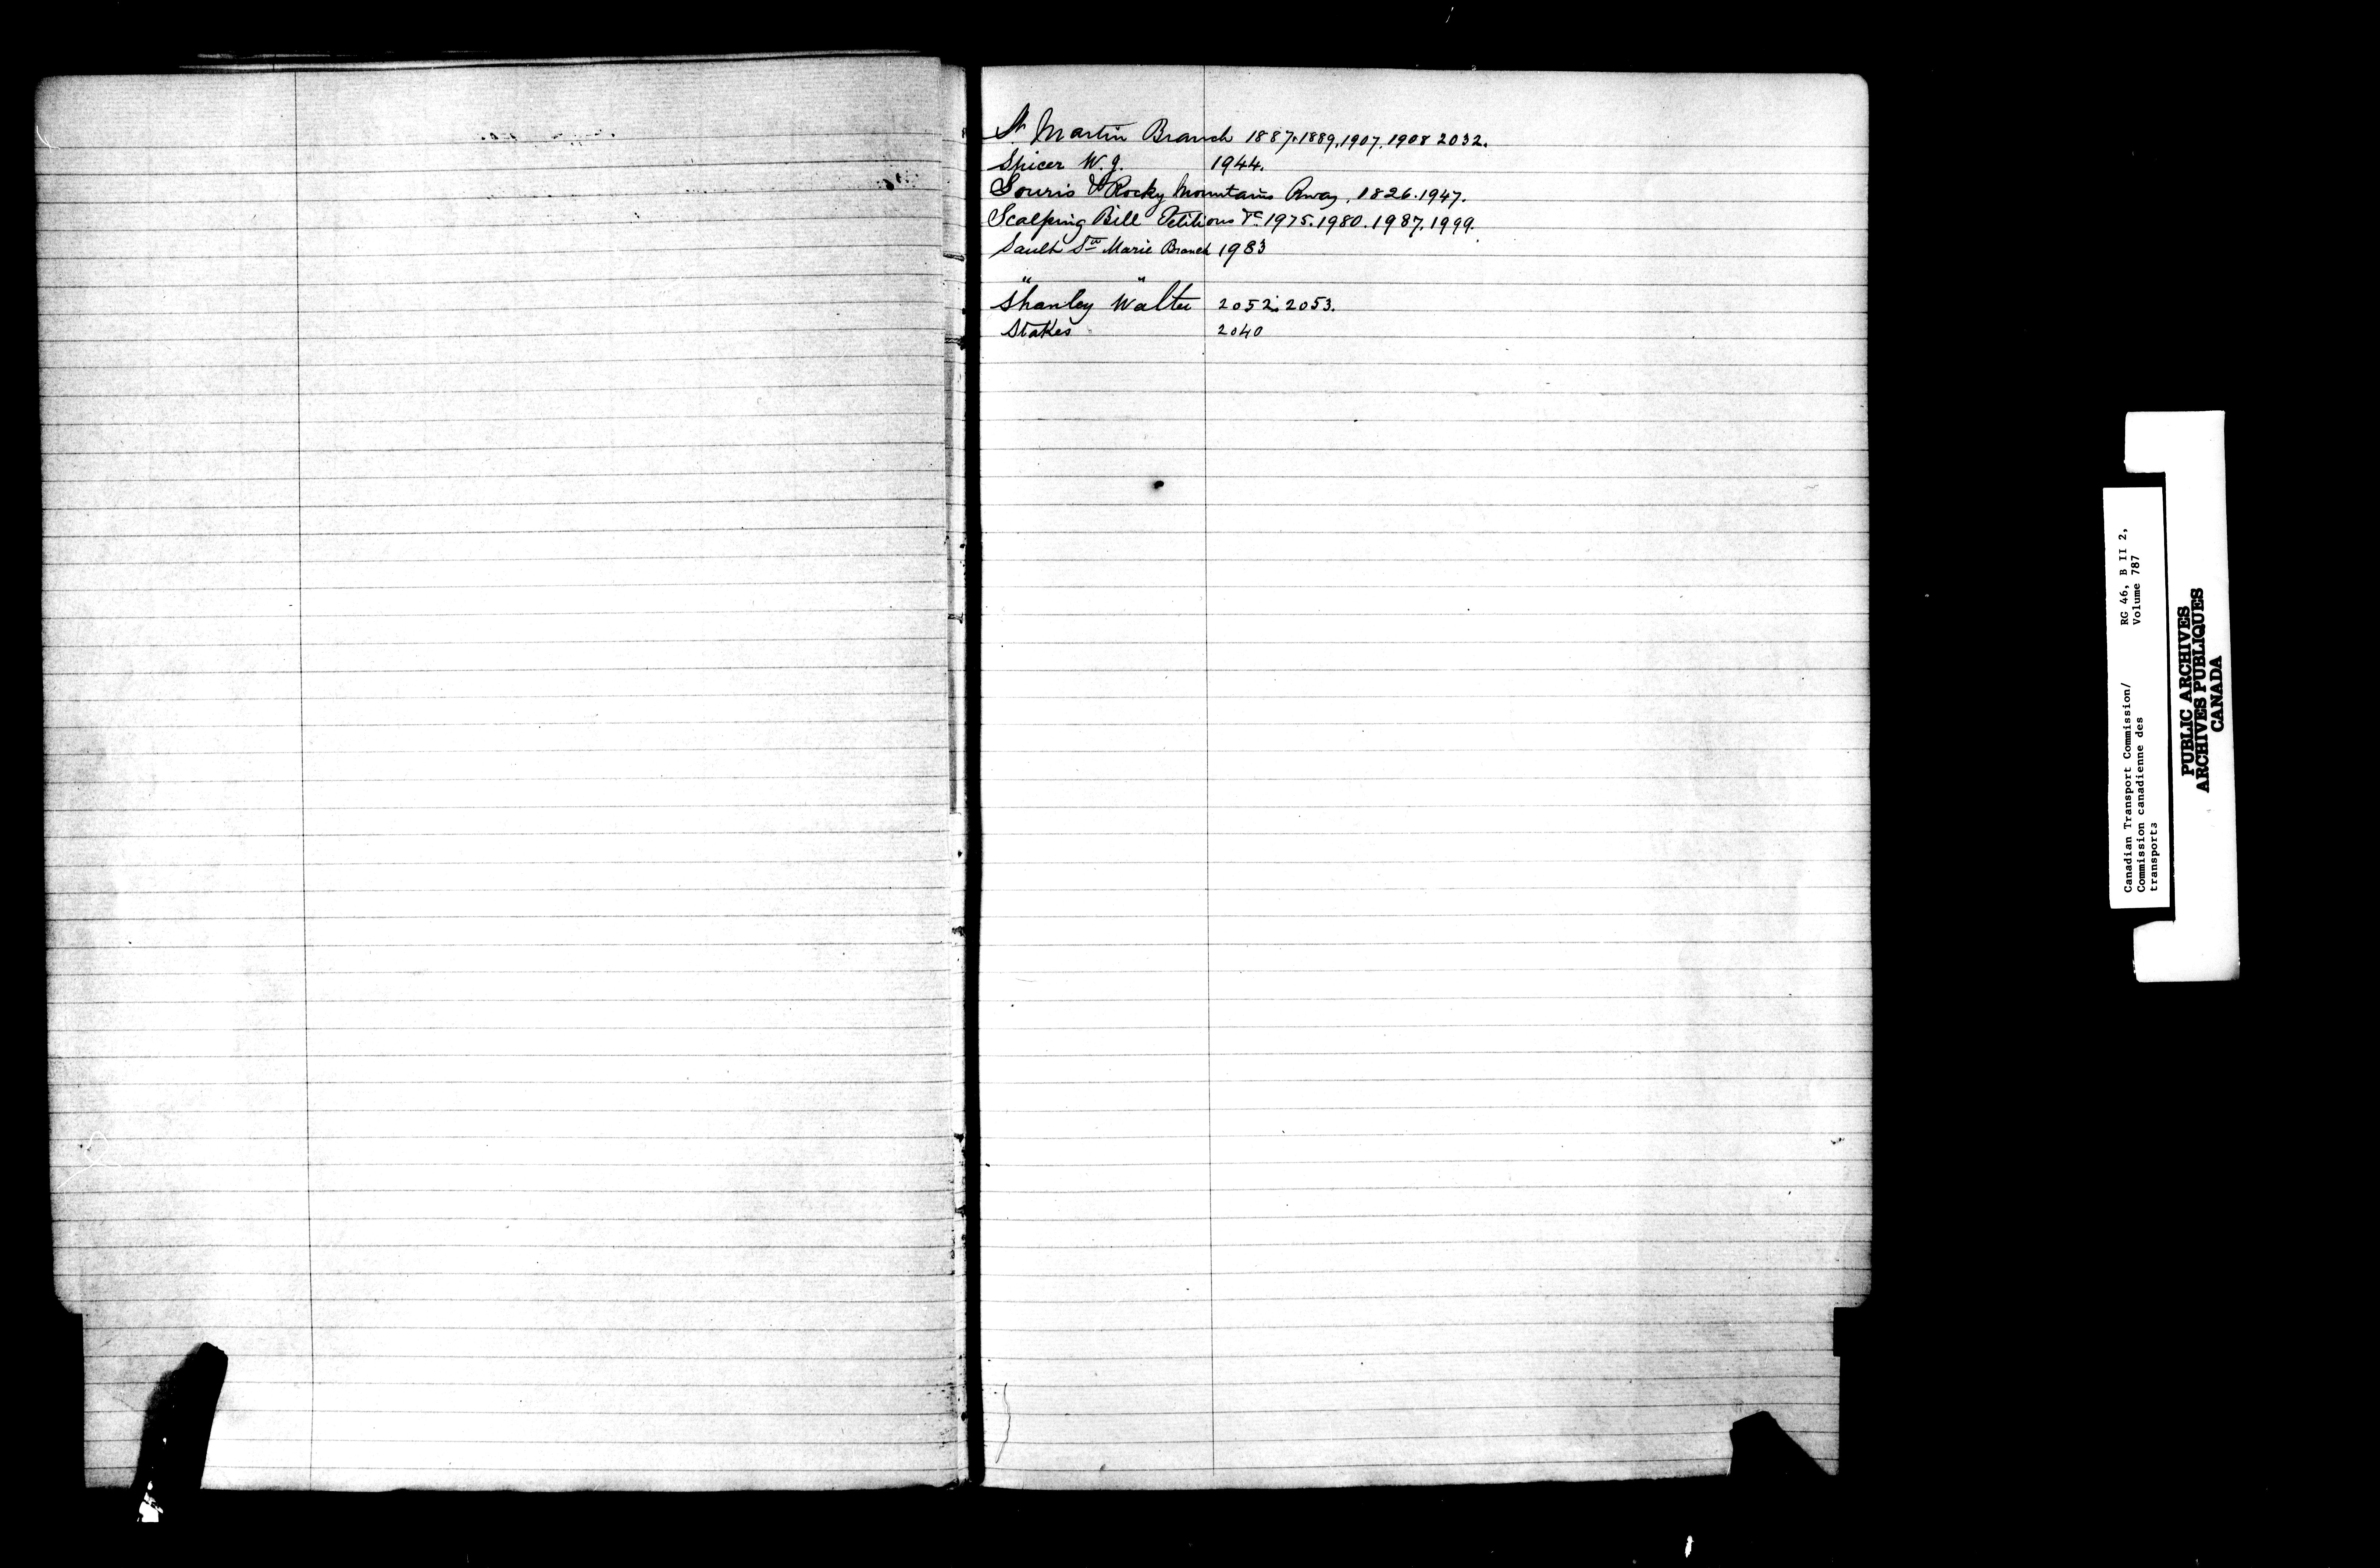 St Martin Branch 1887.1889.1907.1908 2032.
Spicer W. J. 1944.
Souris & Rocky Mountains Rway. 1826.1947.
Scalping Bill Petitions &c. 1975.1980.1987.1999.
Sault Ste Marie Branch 1983
" "
Shanley Walter 2052.2053.
Stakes 2040
Canadian Transport Commission/ RG 46, B II 2,
Commission canadienne des Volume 787
transports
PUBLIC ARCHIVES
ARCHIVES PUBLIQUES
CANADA